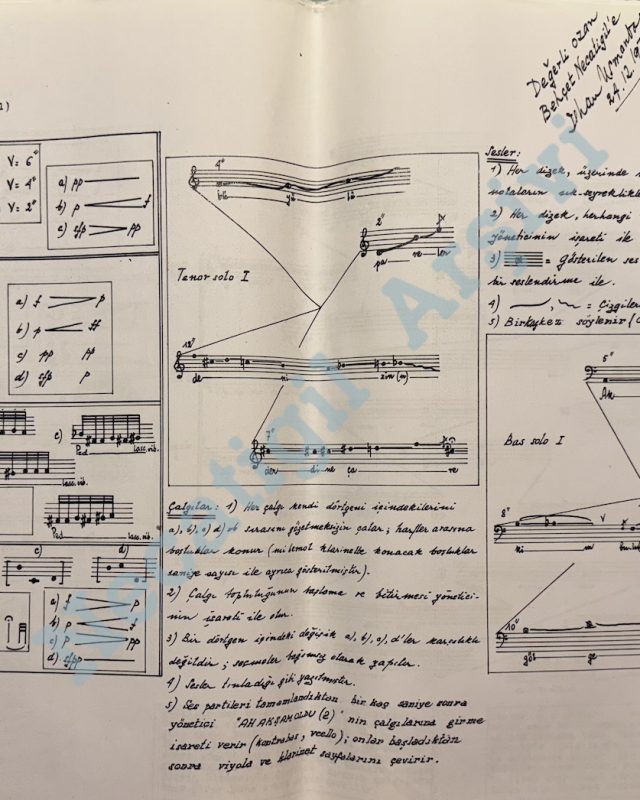 Değerli ozan
Behçet Necatigil'e
İlhan Usmanbaş
24.12.19
2)
V = 6"
V = 4"
V = 2"
a) pp
b) p f
c) sfp pp
a) f p
b) p ff
c) pp pp
d) sfp p
e)
Ped lasc.vib.
lasc.vib.
Ped lasc.vib.
c) d)
a) f p
b) p f
c) p pp
d) sfpp
4"
bü yü lü
2"
pa re ler
Tenor solo I
12"
de ni zin (n)
7"
der di ne ça re
Çalgılar: 1) Her çalgı kendi dörtgeni içindekilerini
a), b), c) d) vb sırasını gözetmeksizin çalar; harfler arasına
boşluklar konur (mi bemol klarinette konacak boşluklar
saniye sayısı ile ayrıca gösterilmiştir).
2) Çalgı topluluğunun başlama ve bitirmesi yönetici-
nin işareti ile olur.
3) Bir dörtgen içindeki değişik a), b), c), d'ler karşılıklı
değildir; seçmeler bağımsız olarak yapılır.
4) Sesler tınladığı gibi yazılmıştır.
5) Ses partileri tamamlandıktan bir kaç saniye sonra
yönetici "AH AKŞAM OLDU (2)" nin çalgılarına girme
işareti verir (kontrabas, vcello); onlar başladıktan
sonra viyola ve klarinet sayfalarını çevirir.
Sesler:
1) Her dizek, üzerinde
notaların sık-seyreklikle
2) Her dizek, herhangi
yöneticinin işareti ile
3) = Gösterilen ses
bir seslendirme ile.
4) = Çizgiler
5) Birkaç kez söylenir
5"
Bas solo I
8"
ki
10"
göl ge
Necatigil Arşivi